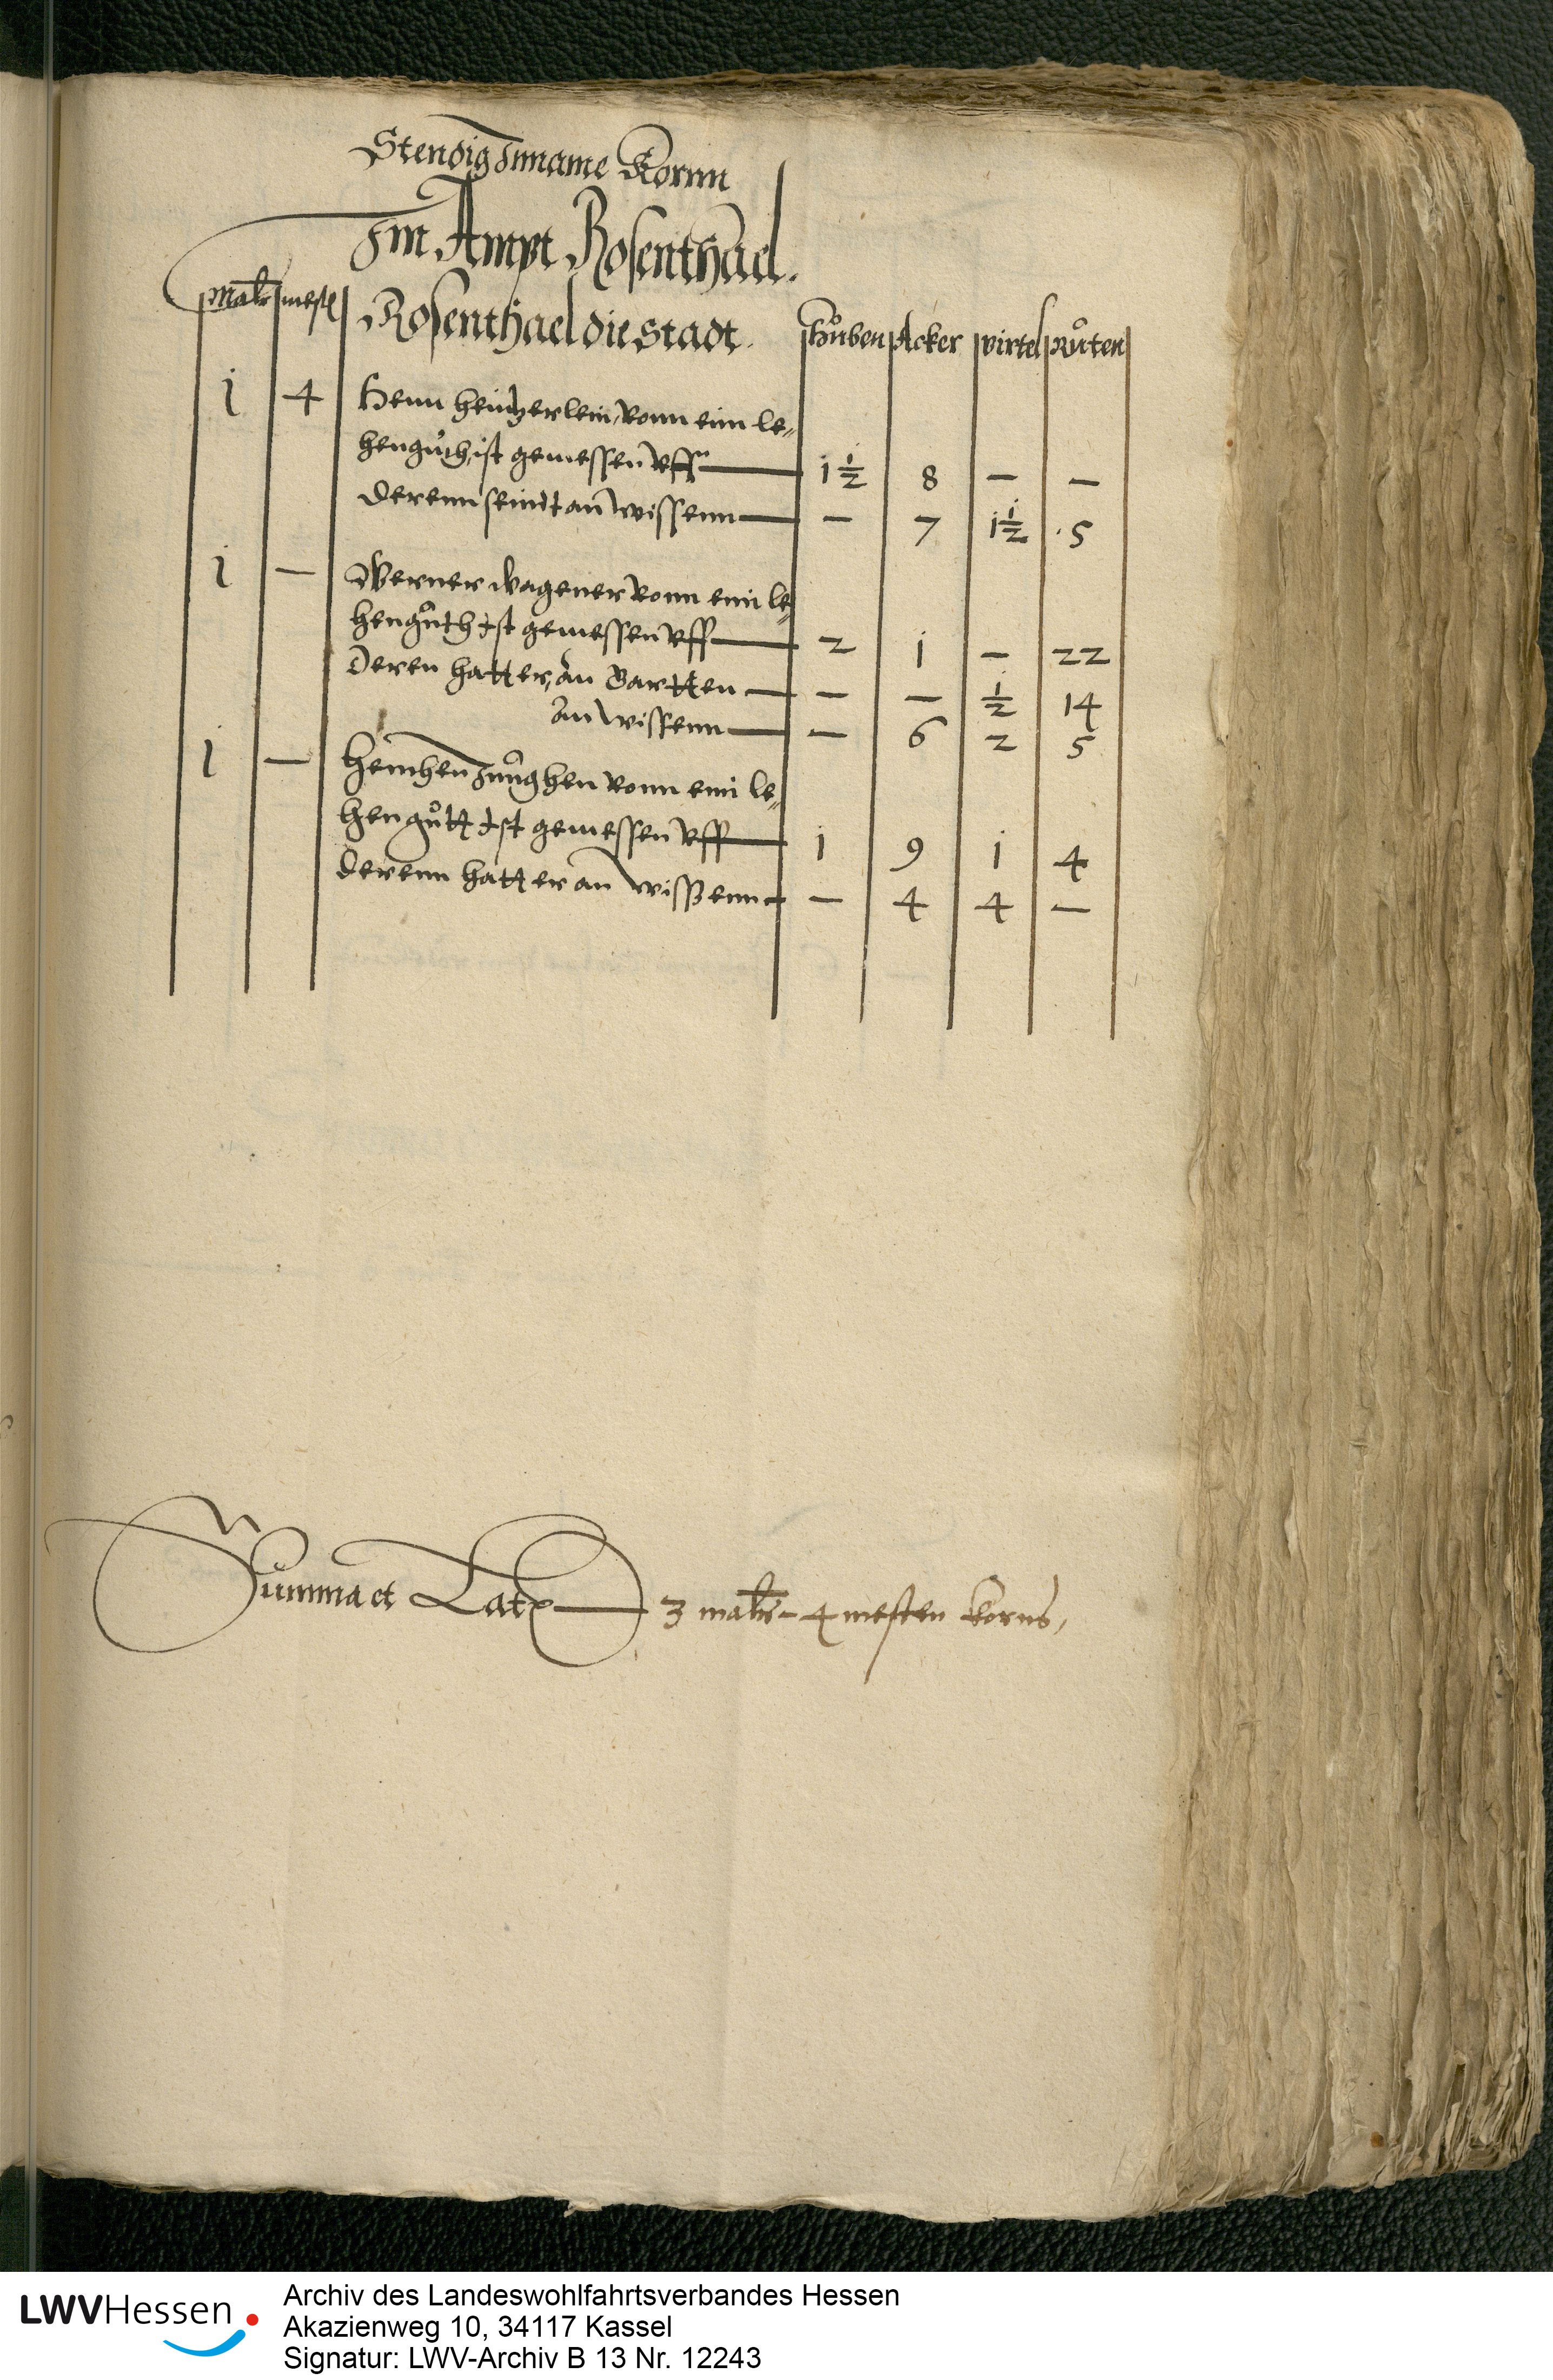 Stendig Inname Kornn
Im Ampt Rosenthael.
Maltr mestē Rosenthael die Stadt. Hůben Acker virtel Růten
1 4 Henn Heintzerlein, vonn eim le=
hengůth, ist gemessen vff 1½ 8 – –
Derenn seindt an wissenn – 7 1½ 5
1 – Werner Wagener vonn eim le=
hengůth Ist gemessen vff 2 1 – 22
Deren hatt er, an Gartten – – ½ 14
An wissenn – 6 2 5
1 – Henchen Jůnghen vonn eim le=
hengůtt Ist gemessen vff 1 9 1 4
Derenn hatt er an wissenn – 4 4 –
Summa et Latus 3 maltr – 4 mesten Korns,
LWVHessen
Archiv des Landeswohlfahrtsverbandes Hessen
Akazienweg 10, 34117 Kassel
Signatur: LWV-Archiv B 13 Nr. 12243